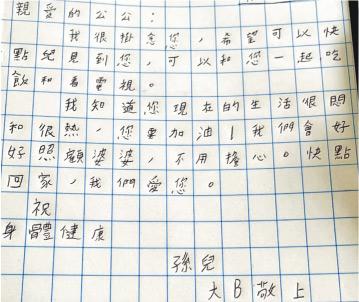 親愛的公公：
我很掛念您，希望可以快
點兒見到您，可以和您一起吃
飲和看電視。
我知道您現在的生活很悶
和很熱，您要加油！我們會好
好照顧婆婆，不用擔心。快點
回家，我們愛您。
祝
身體健康
孫兒
大B敬上